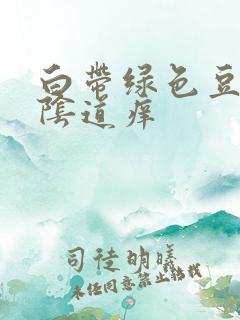 白帶绿色豆
陰道痒
司徒明曦
未经同意禁止转载